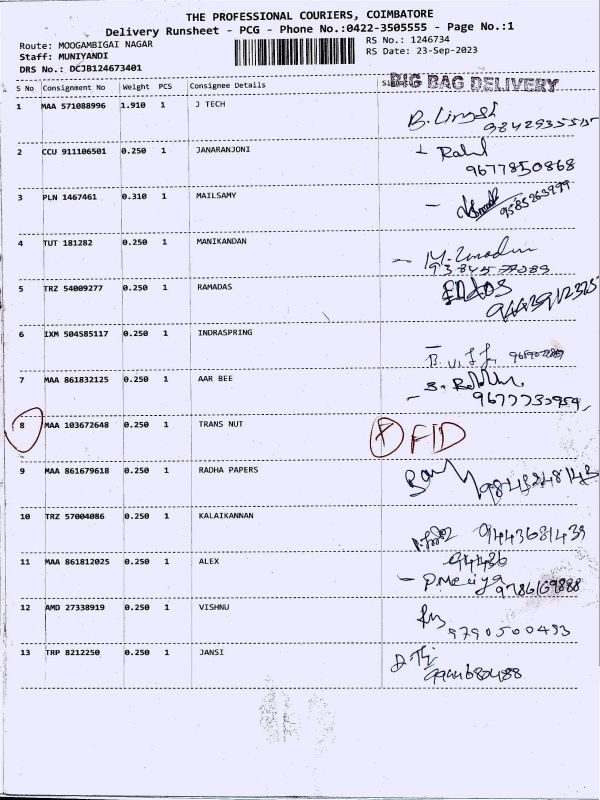 THE PROFESSIONAL COURIERS, COIMBATORE
Delivery Runsheet - PCG - Phone No.:0422-3505555 - Page No.:1
Route: MOOGAMBIGAI NAGAR RS No.: 1246734
Staff: MUNIYANDI RS Date: 23-Sep-2023
DRS No.: DCJB124673401
BIG BAG DELIVERY
S No Consignment No Weight PCS Consignee Details
1 MAA 571088996 1.910 1 J TECH
9842935515
2 CCU 911106501 0.250 1 JANARANJONI Rahul
9677850868
3 PLN 1467461 0.310 1 MAILSAMY 9585263999
4 TUT 181282 0.250 1 MANIKANDAN
5 TRZ 54009277 0.250 1 RAMADAS
6 IXM 504585117 0.250 1 INDRASPRING
7 MAA 861832125 0.250 1 AAR BEE
8 MAA 103672648 0.250 1 TRANS NUT FID
9 MAA 861679618 0.250 1 RADHA PAPERS
10 TRZ 57004086 0.250 1 KALAIKANNAN
9443681439
11 MAA 861812025 0.250 1 ALEX 94436
9786169888
12 AMD 27338919 0.250 1 VISHNU
9790500493
13 TRP 8212250 0.250 1 JANSI
9944680488